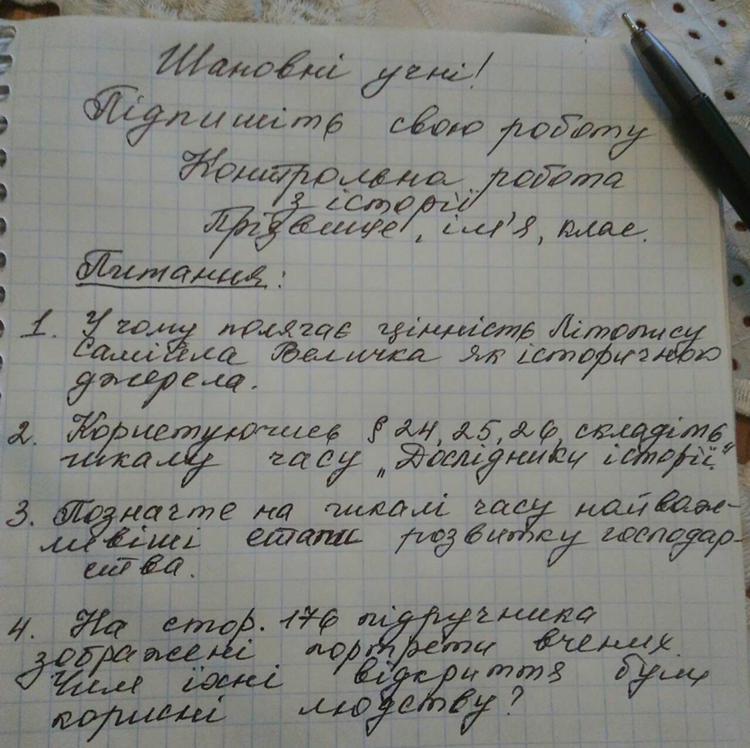 Шановні учні!
Підпишіть свою роботу
Контрольна робота
з історії
Прізвище, ім'я, клас.
Питання:
1. У чому полягає цінність Літопису
Самійла Величка як історичного
джерела.
2. Користуючись § 24, 25, 26, складіть
шкалу часу „Дослідники історії"
3. Позначте на шкалі часу найваж-
ливіші етапи розвитку господар-
ства.
4. На стор. 176 підручника
зображені портрети вчених.
Чим їхні відкриття були
корисні людству?